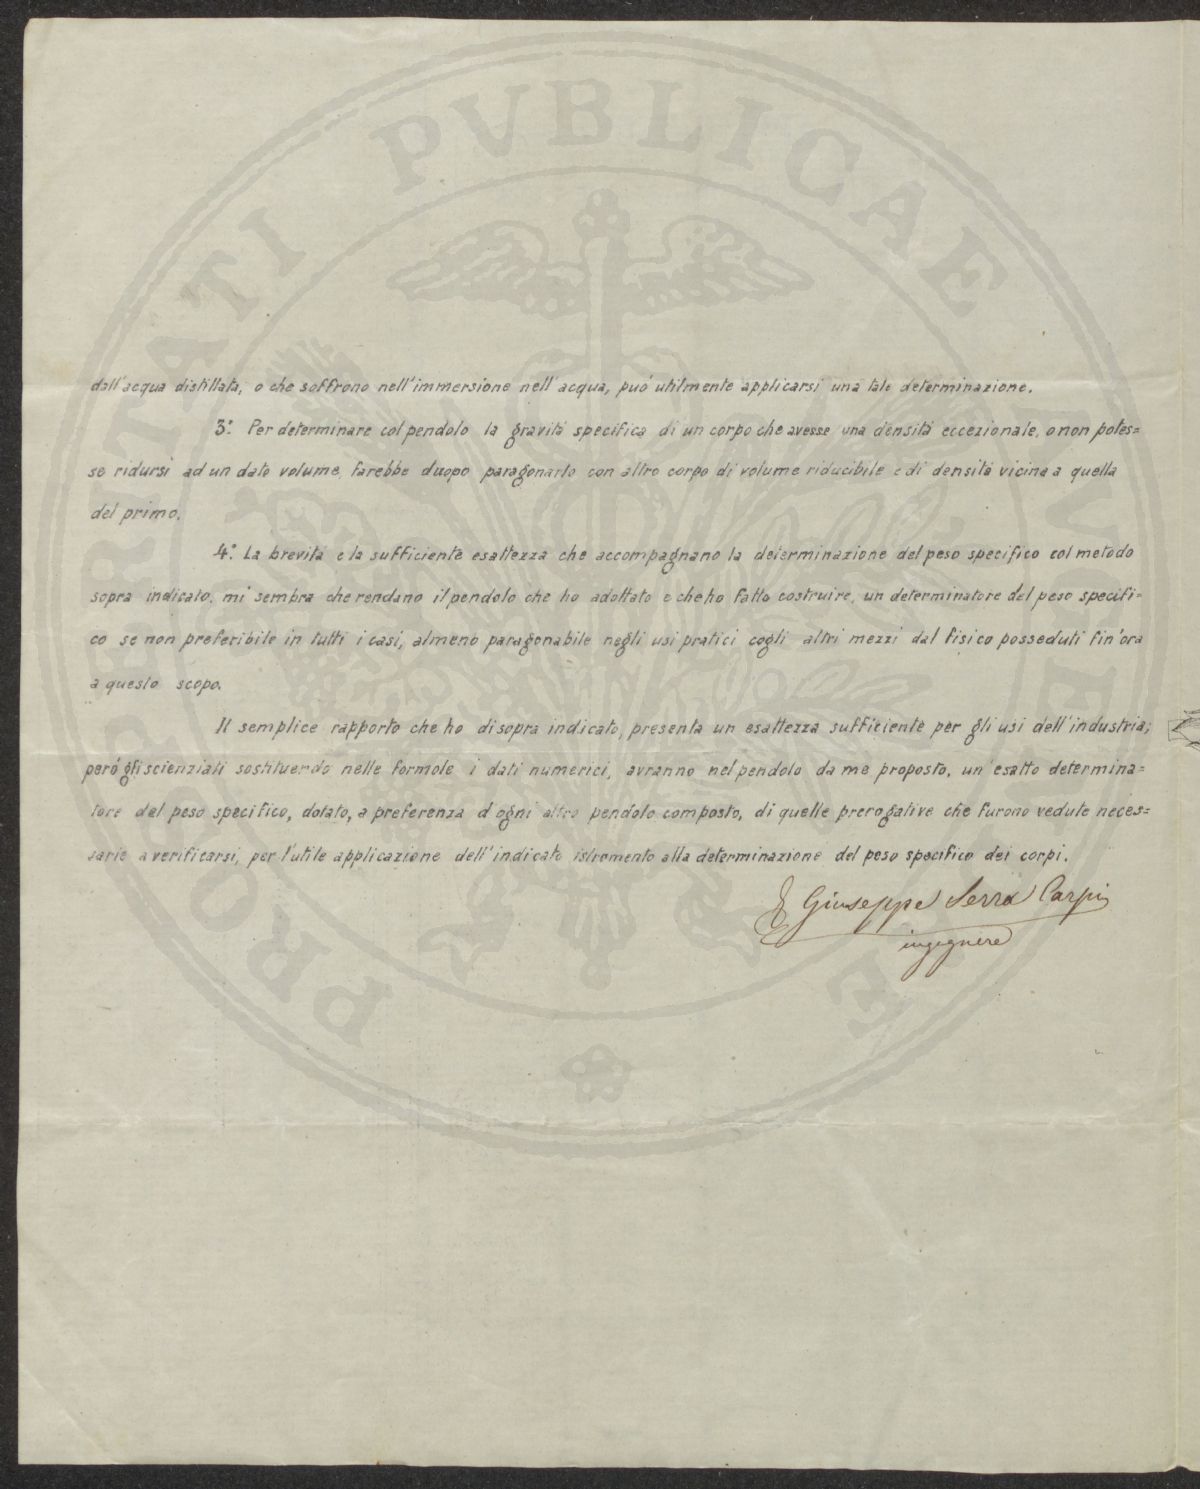 PROSPERITATI PVBLICAE AVGENDAE
dall'acqua distillata, o che soffrono nell'immersione nell'acqua, può utilmente applicarsi una tale determinazione.
3.° Per determinare col pendolo la gravità specifica di un corpo che avesse una densità eccezionale, o non potes=
se ridursi ad un dato volume, farebbe duopo paragonarlo con altro corpo di volume riducibile e di densità vicina a quella
del primo.
4.° La brevità e la sufficiente esattezza che accompagnano la determinazione del peso specifico col metodo
sopra indicato, mi sembra che rendano il pendolo che ho adottato e che ho fatto costruire, un determinatore del peso specifi=
co se non preferibile in tutti i casi, almeno paragonabile negli usi pratici cogli altri mezzi dal fisico posseduti fin'ora
a questo scopo.
Il semplice rapporto che ho di sopra indicato, presenta un esattezza sufficiente per gli usi dell'industria;
però gli scienziati sostituendo nelle formole i dati numerici, avranno nel pendolo da me proposto, un'esatto determina=
tore del peso specifico, dotato, a preferenza d'ogni altro pendolo composto, di quelle prerogative che furono vedute neces=
sarie a verificarsi, per l'utile applicazione dell'indicato istromento alla determinazione del peso specifico dei corpi.
Giuseppe Serra Carpi
ingegnere